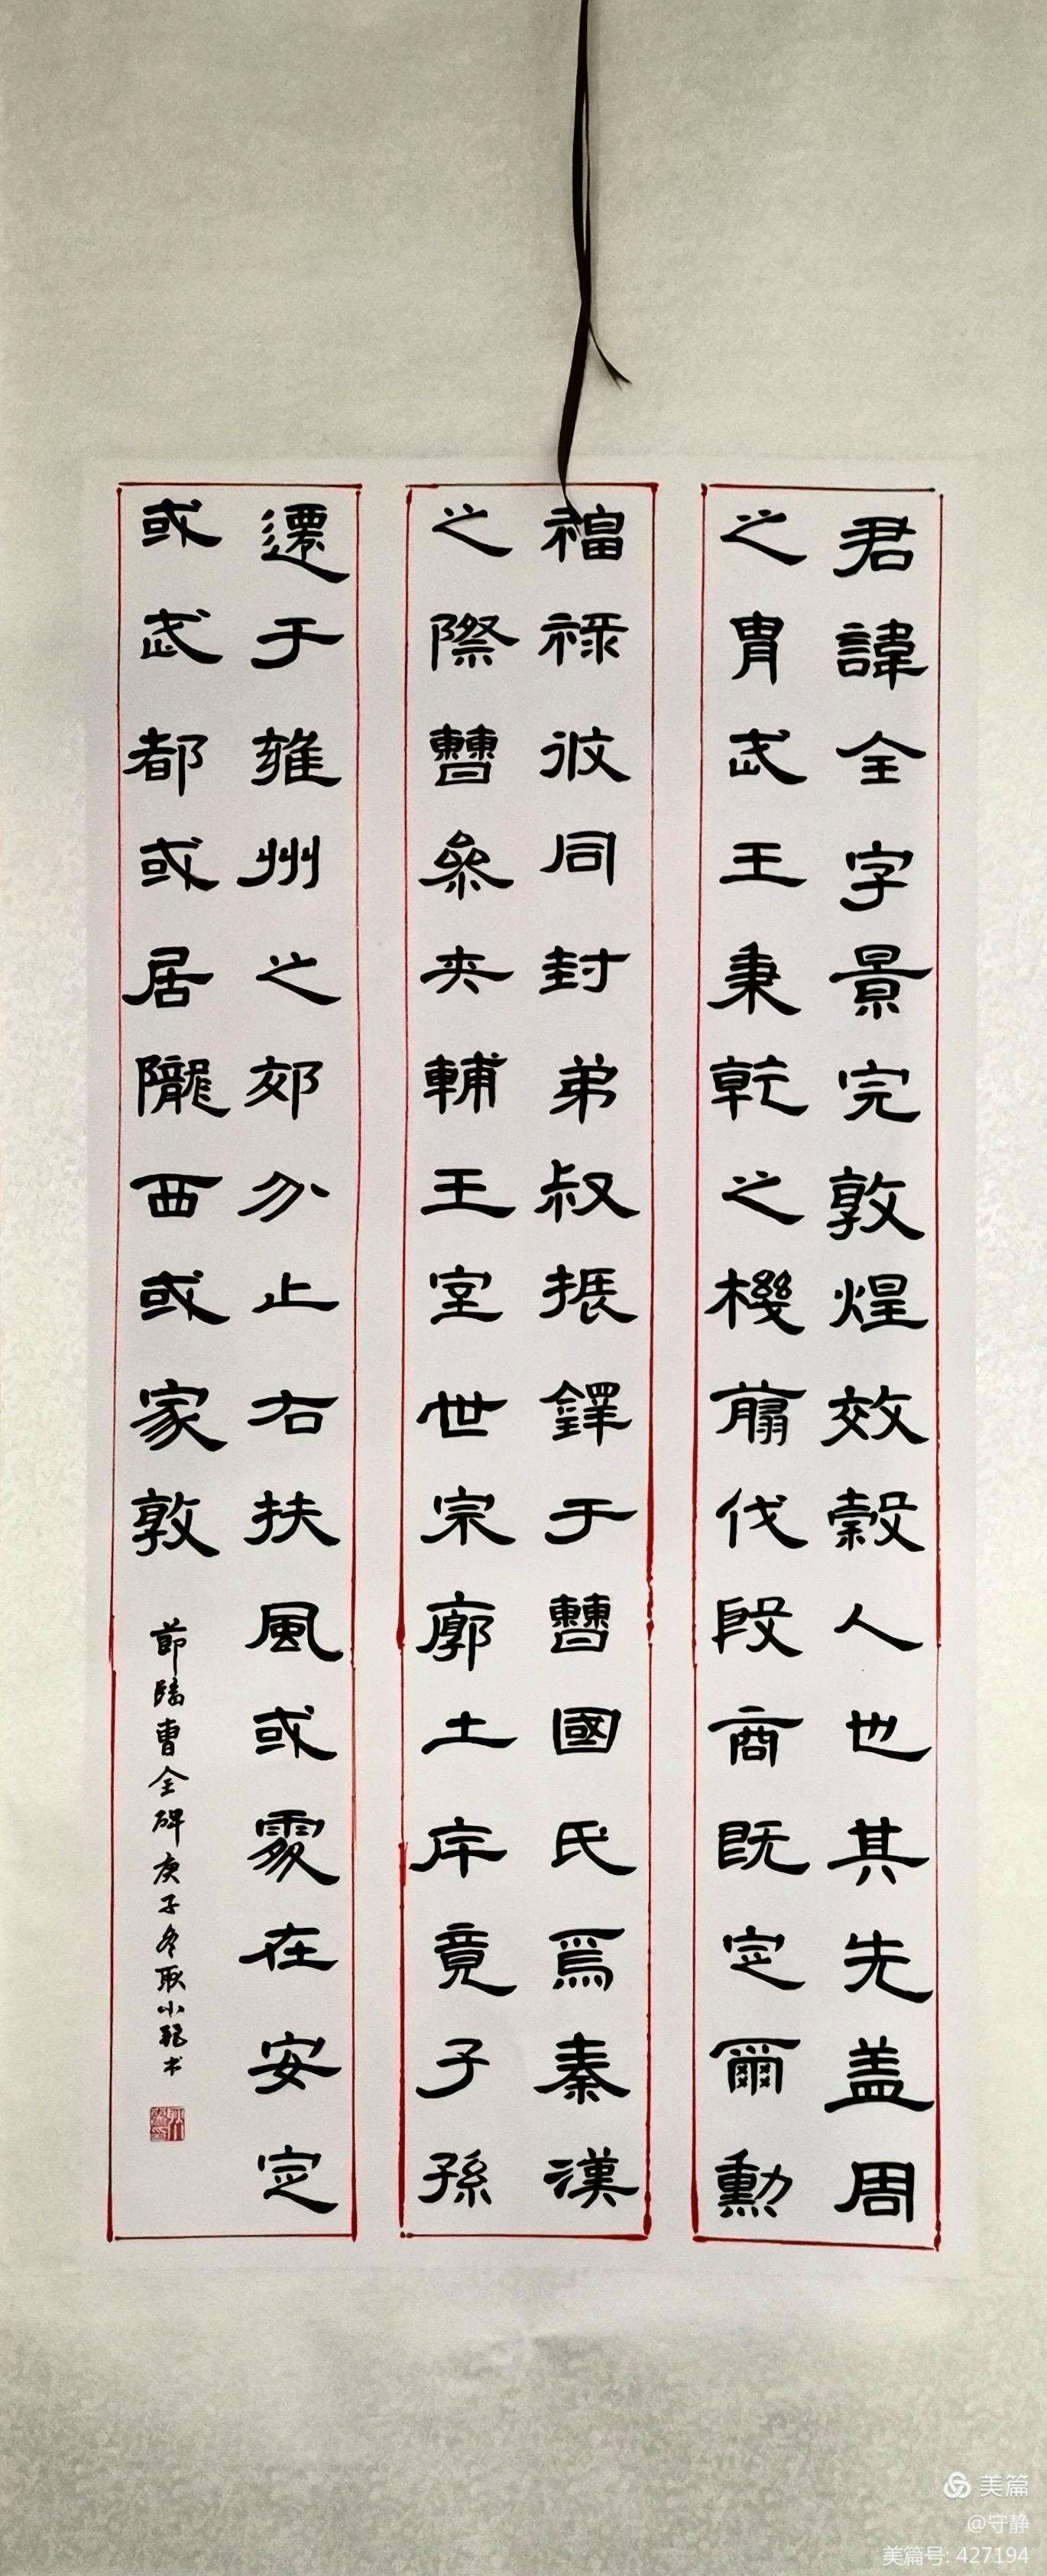 君諱全字景完敦煌效穀人也其先盖周
之胄武王秉乾之機翦伐殷商既定爾勳
福禄攸同封弟叔振鐸于曹國氏焉秦漢
之際曹參夾輔王室世宗廓土斥竟子孫
遷于雍州之郊分止右扶風或處在安定
或武都或居隴西或家敦
節臨曹全碑庚子冬耿小书
美篇
@守静
美篇号: 427194